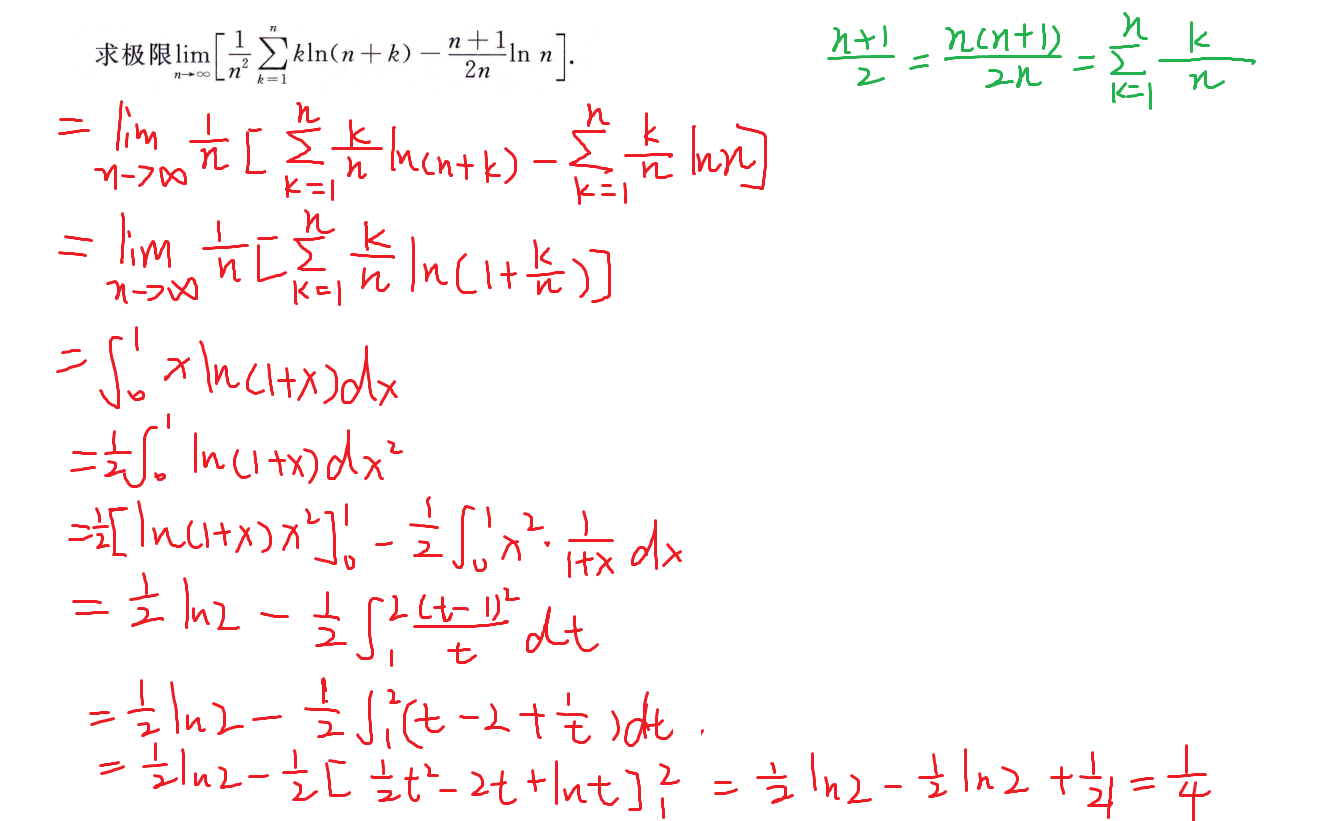 求极限 lim_{n→∞} [ 1/n² ∑_{k=1}^{n} k ln(n + k) − (n + 1)/(2n) ln n ].
(n+1)/2 = n(n+1)/(2n) = ∑_{k=1}^{n} k/n
= lim_{n→∞} 1/n [ ∑_{k=1}^{n} k/n ln(n+k) − ∑_{k=1}^{n} k/n ln n ]
= lim_{n→∞} 1/n [ ∑_{k=1}^{n} k/n ln(1+k/n) ]
= ∫_0^1 x ln(1+x) dx
= 1/2 ∫_0^1 ln(1+x) dx²
= 1/2 [ ln(1+x) x² ]_0^1 − 1/2 ∫_0^1 x² · 1/(1+x) dx
= 1/2 ln2 − 1/2 ∫_1^2 (t−1)²/t dt
= 1/2 ln2 − 1/2 ∫_1^2 (t − 2 + 1/t) dt .
= 1/2 ln2 − 1/2 [ 1/2 t² − 2t + ln t ]_1^2 = 1/2 ln2 − 1/2 ln2 + 1/4 = 1/4